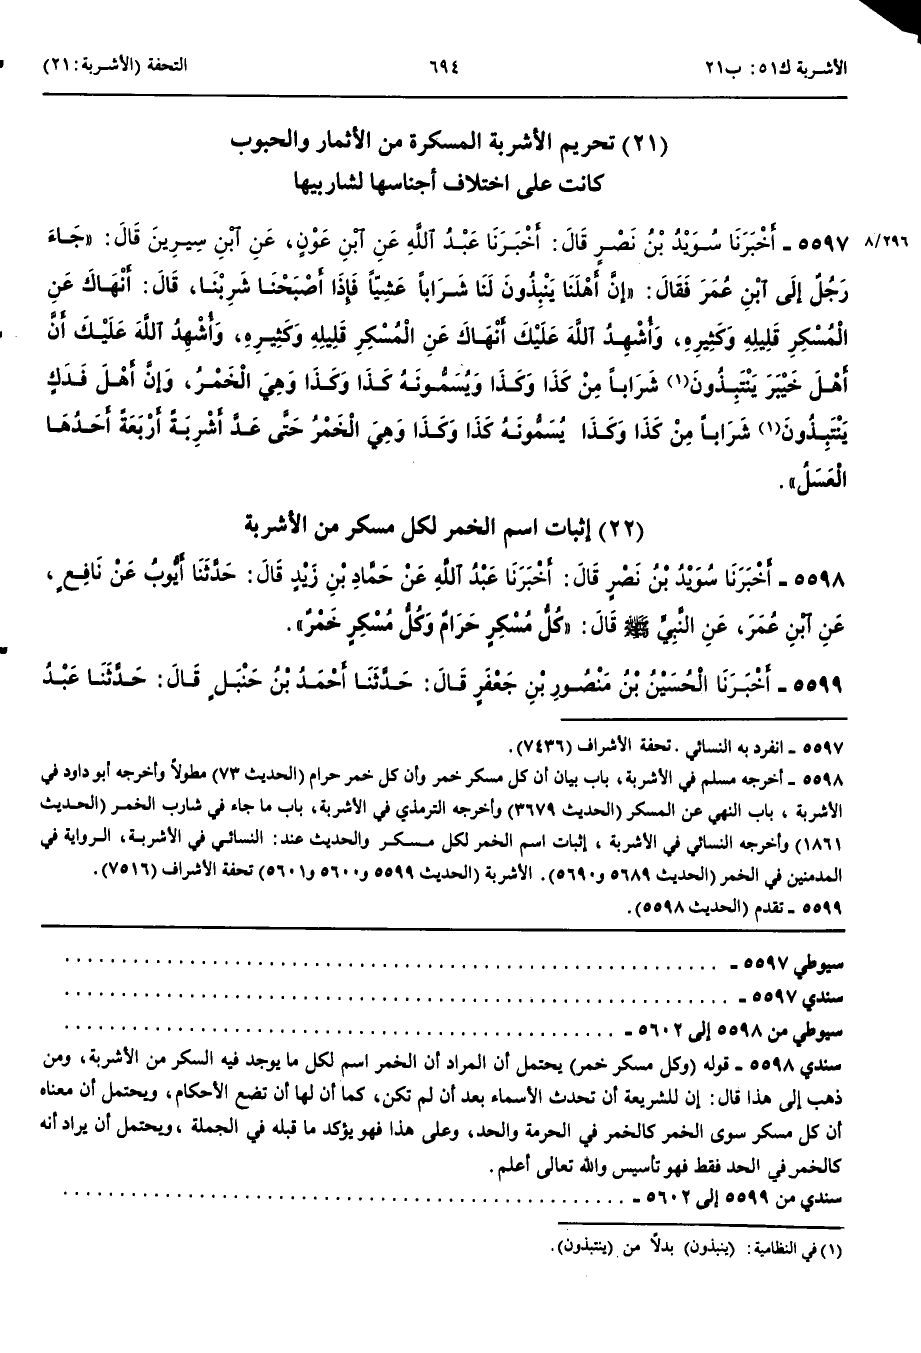 الأشربة ك٥١: ب٢١ ٦٩٤ التحفة (الأشربة: ٢١)
(٢١) تحريم الأشربة المسكرة من الأثمار والحبوب
كانت على اختلاف أجناسها لشاربيها
٨/٢٩٦ ٥٥٩٧ ـ أَخْبَرَنَا سُوَيْدُ بْنُ نَصْرٍ قَالَ: أَخْبَرَنَا عَبْدُ ٱللَّهِ عَنِ ٱبْنِ عَوْنٍ، عَنِ ٱبْنِ سِيرِينَ قَالَ: «جَاءَ
رَجُلٌ إِلَى ٱبْنِ عُمَرَ فَقَالَ: «إِنَّ أَهْلَنَا يَنْبِذُونَ لَنَا شَرَاباً عَشِيّاً فَإِذَا أَصْبَحْنَا شَرِبْنَا، قَالَ: أَنْهَاكَ عَنِ
الْمُسْكِرِ قَلِيلِهِ وَكَثِيرِهِ، وَأُشْهِدُ ٱللَّهَ عَلَيْكَ أَنْهَاكَ عَنِ الْمُسْكِرِ قَلِيلِهِ وَكَثِيرِهِ، وَأُشْهِدُ ٱللَّهَ عَلَيْكَ أَنَّ
أَهْلَ خَيْبَرَ يَنْتَبِذُونَ(١) شَرَاباً مِنْ كَذَا وَكَذَا وَيُسَمُّونَهُ كَذَا وَكَذَا وَهِيَ الْخَمْرُ، وَإِنَّ أَهْلَ فَدَكٍ
يَنْتَبِذُونَ(١) شَرَاباً مِنْ كَذَا وَكَذَا يُسَمُّونَهُ كَذَا وَكَذَا وَهِيَ الْخَمْرُ حَتَّى عَدَّ أَشْرِبَةً أَرْبَعَةً أَحَدُهَا
الْعَسَلُ».
(٢٢) إثبات اسم الخمر لكل مسكر من الأشربة
٥٥٩٨ ـ أَخْبَرَنَا سُوَيْدُ بْنُ نَصْرٍ قَالَ: أَخْبَرَنَا عَبْدُ ٱللَّهِ عَنْ حَمَّادِ بْنِ زَيْدٍ قَالَ: حَدَّثَنَا أَيُّوبُ عَنْ نَافِعٍ،
عَنِ ٱبْنِ عُمَرَ، عَنِ النَّبِيِّ ﷺ قَالَ: «كُلُّ مُسْكِرٍ حَرَامٌ وَكُلُّ مُسْكِرٍ خَمْرٌ».
٥٥٩٩ ـ أَخْبَرَنَا الْحُسَيْنُ بْنُ مَنْصُورِ بْنِ جَعْفَرٍ قَالَ: حَدَّثَنَا أَحْمَدُ بْنُ حَنْبَلٍ قَالَ: حَدَّثَنَا عَبْدُ
٥٥٩٧ ـ انفرد به النسائي. تحفة الأشراف (٧٤٣٦).
٥٥٩٨ ـ أخرجه مسلم في الأشربة، باب بيان أن كل مسكر خمر وأن كل خمر حرام (الحديث ٧٣) مطولاً وأخرجه أبو داود في
الأشربة ، باب النهي عن المسكر (الحديث ٣٦٧٩) وأخرجه الترمذي في الأشربة، باب ما جاء في شارب الخمر (الحديث
١٨٦١) وأخرجه النسائي في الأشربة ، إثبات اسم الخمر لكل مسكر والحديث عند: النسائي في الأشربة، الرواية في
المدمنين في الخمر (الحديث ٥٦٨٩ و٥٦٩٠). الأشربة (الحديث ٥٥٩٩ و٥٦٠٠ و٥٦٠١) تحفة الأشراف (٧٥١٦).
٥٥٩٩ ـ تقدم (الحديث ٥٥٩٨).
سيوطي ٥٥٩٧ ـ ........................................................
سندي ٥٥٩٧ ـ ........................................................
سيوطي من ٥٥٩٨ إلى ٥٦٠٢ ـ ................................................
سندي ٥٥٩٨ ـ قوله (وكل مسكر خمر) يحتمل أن المراد أن الخمر اسم لكل ما يوجد فيه السكر من الأشربة، ومن
ذهب إلى هذا قال: إن للشريعة أن تحدث الأسماء بعد أن لم تكن، كما أن لها أن تضع الأحكام، ويحتمل أن معناه
أن كل مسكر سوى الخمر كالخمر في الحرمة والحد، وعلى هذا فهو يؤكد ما قبله في الجملة ، ويحتمل أن يراد أنه
كالخمر في الحد فقط فهو تأسيس والله تعالى أعلم.
سندي من ٥٥٩٩ إلى ٥٦٠٢ ـ ................................................
(١) في النظامية: (ينبذون) بدلاً من (ينتبذون).